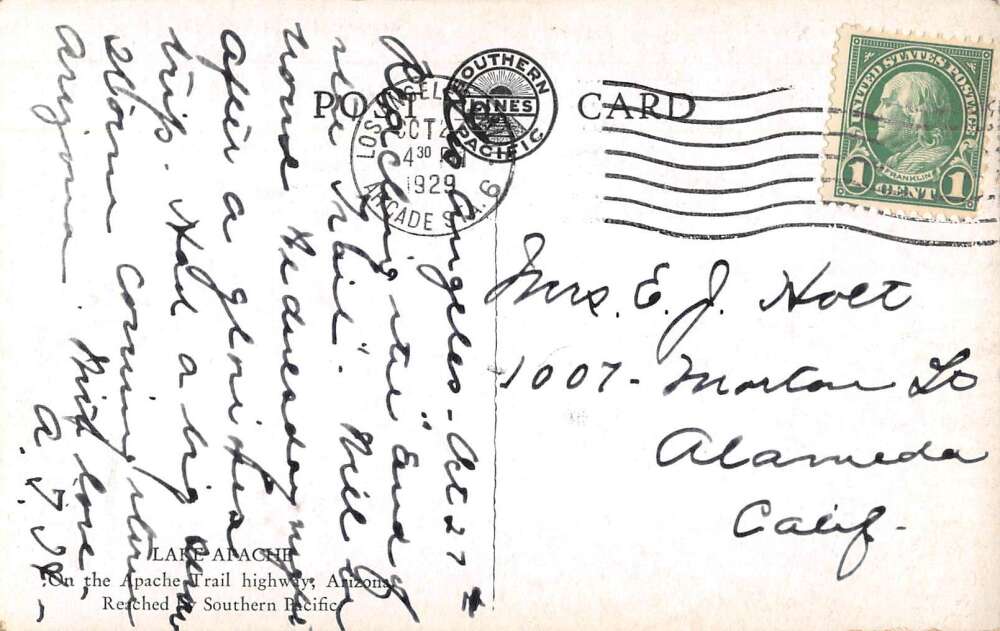 POST CARD
SOUTHERN
LINES
PACIFIC
LOS ANGELES
OCT
4 30 PM
1929
ARCADE STA. 6
UNITED STATES POSTAGE
FRANKLIN
1 CENT 1
Los Angeles - Oct 27
Reaching the "End of
the trail". Will be
home Wednesday night
after a glorious
trip. Had a big sand
storm coming thru
Arizona. With love
A. J.
Mrs. E. J. Holt
1007 - Morton St
Alameda
Calif -
LAKE APACHE
On the Apache Trail highway, Arizona
Reached by Southern Pacific